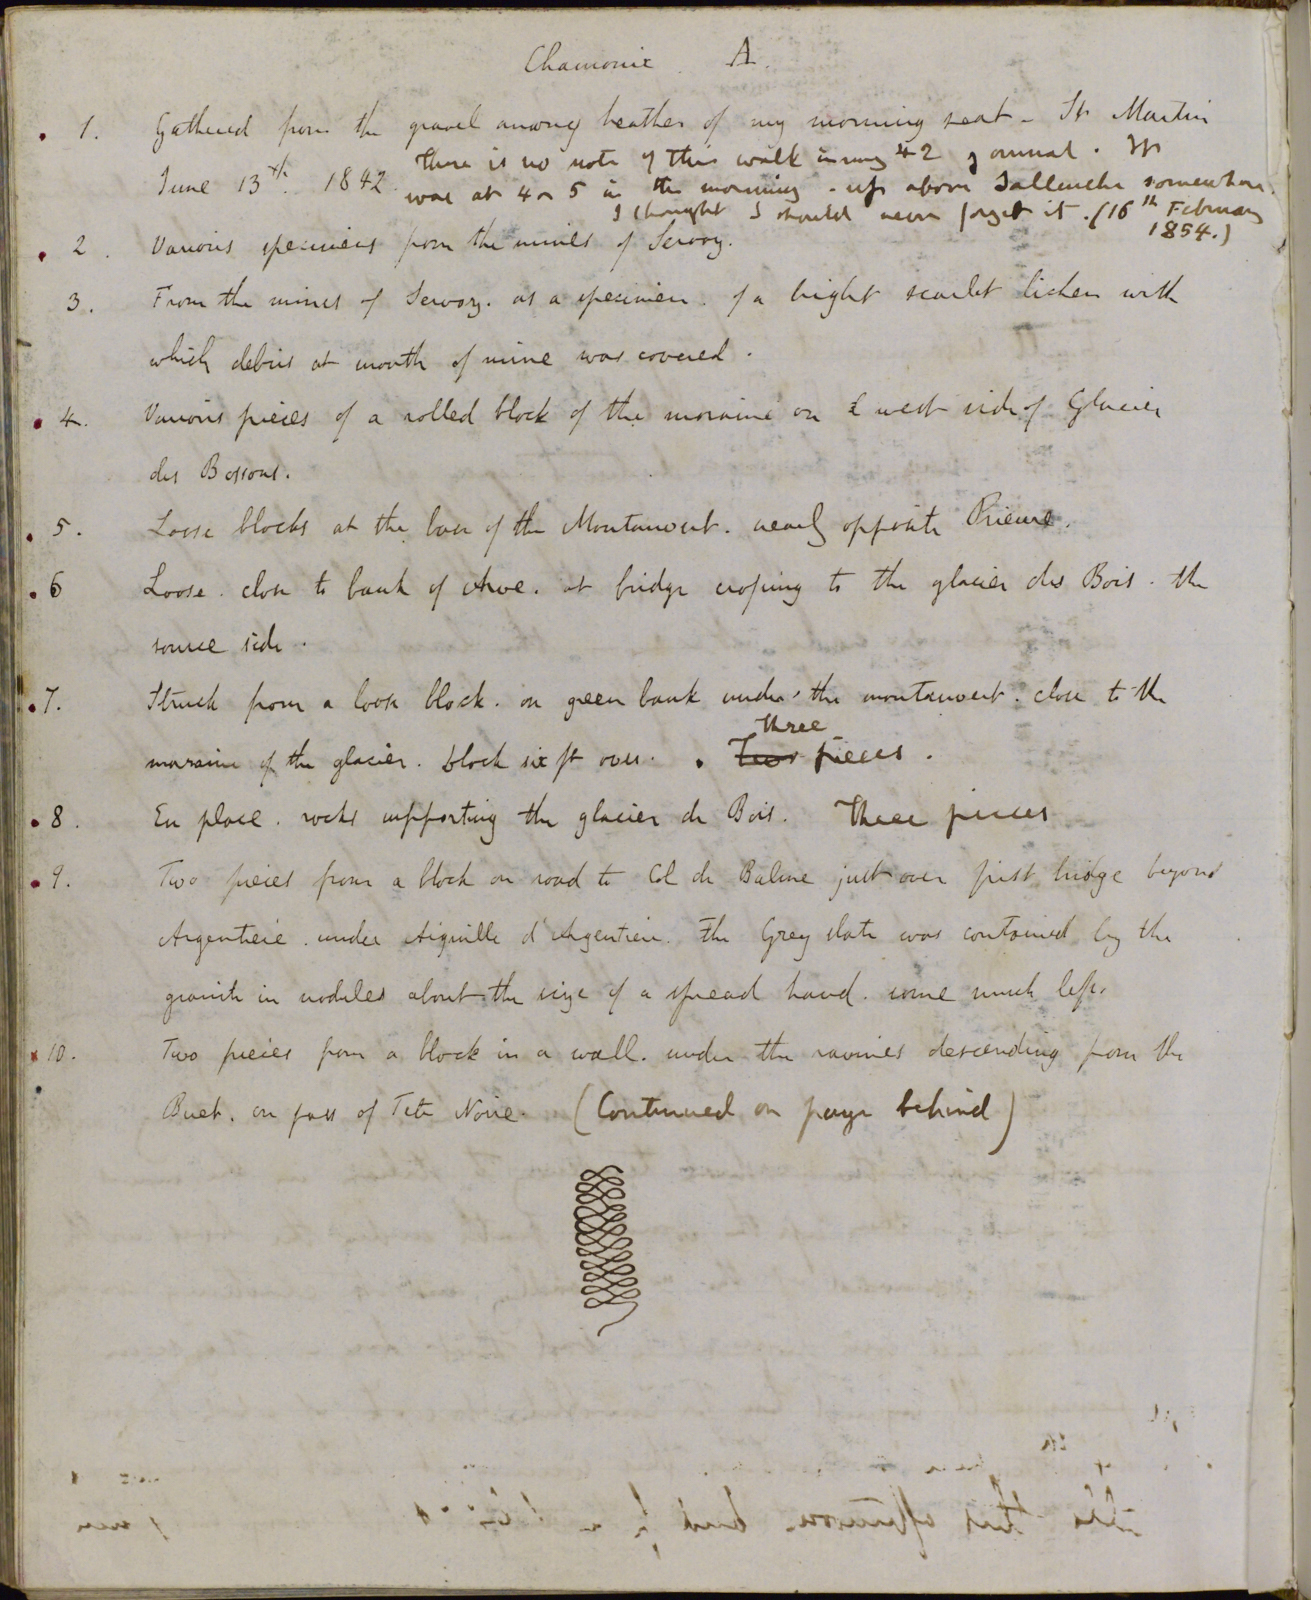 Chamonix. A.
1. Gathered from the gravel among heather of my morning seat - St Martin
June 13th. 1842. There is no note of this walk in my 42 journal. It
was at 4 or 5 in the morning - up above Sallenche somewhere.
I thought I should never forget it. (16th February
1854.)
2. Various specimens from the mines of Servoz.
3. From the mines of Servoz. as a specimen. of a bright scarlet lichen with
which debris at mouth of mine was covered.
4. Various pieces of a rolled block of the moraine on west side of Glacier
des Bossons.
5. Loose blocks at the base of the Montanvert. nearly opposite Prieuré.
6 Loose. close to bank of Arve. at bridge crossing to the glacier des Bois. the
source side.
7. Struck from a loose block. on green bank under the montanvert. close to the
three
moraine of the glacier. block six ft over. . Two pieces.
8. En place. rocks supporting the glacier de Bois. Three pieces
9. Two pieces from a block on road to Col de Balme just over first bridge beyond
Argentiere. under Aiguille d'Argentiere. The Grey slate was contained by the
granite in nodules about the size of a spread hand. some much less.
10. Two pieces from a block in a wall. under the ravines descending from the
Buet. on pass of Tete Noire. (Continued on page behind)